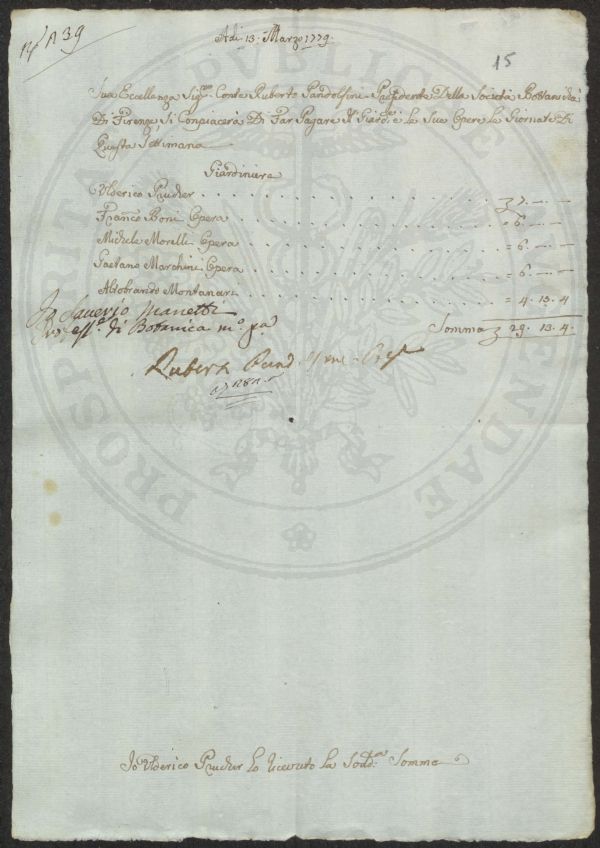 15
Adi 13. Marzo 1779.
Sua Eccellenza Sig.re Conte Ruberto Pandolfini Presidente Della Società Bottanica
Di Firenze Si Conpiacerà Di Far Pagare Il Giard.e e le Sue Opere Le Giornate Di
Questa Settimana
Giardiniere
Ulderico Prucker . . . . . . . . . . 7. — —
Franco Boni Opera . . . . . . . . . . = 6. — —
Michele Morelli Opera . . . . . . . . . = 6. — —
Gaetano Marchini Opera . . . . . . . . . = 6. — —
Aldobrando Montanari . . . . . . . . . = 4. 13. 4
Io Saverio Manetti
Prof.ess.e di Botanica m.o p.a
Somma 29. 13. 4.
Rubert Pand
Io Ulderico Prucker ho ricevuto la Sodd.a Somma
PUBLICAE
PROSPERITATI AUGENDAE